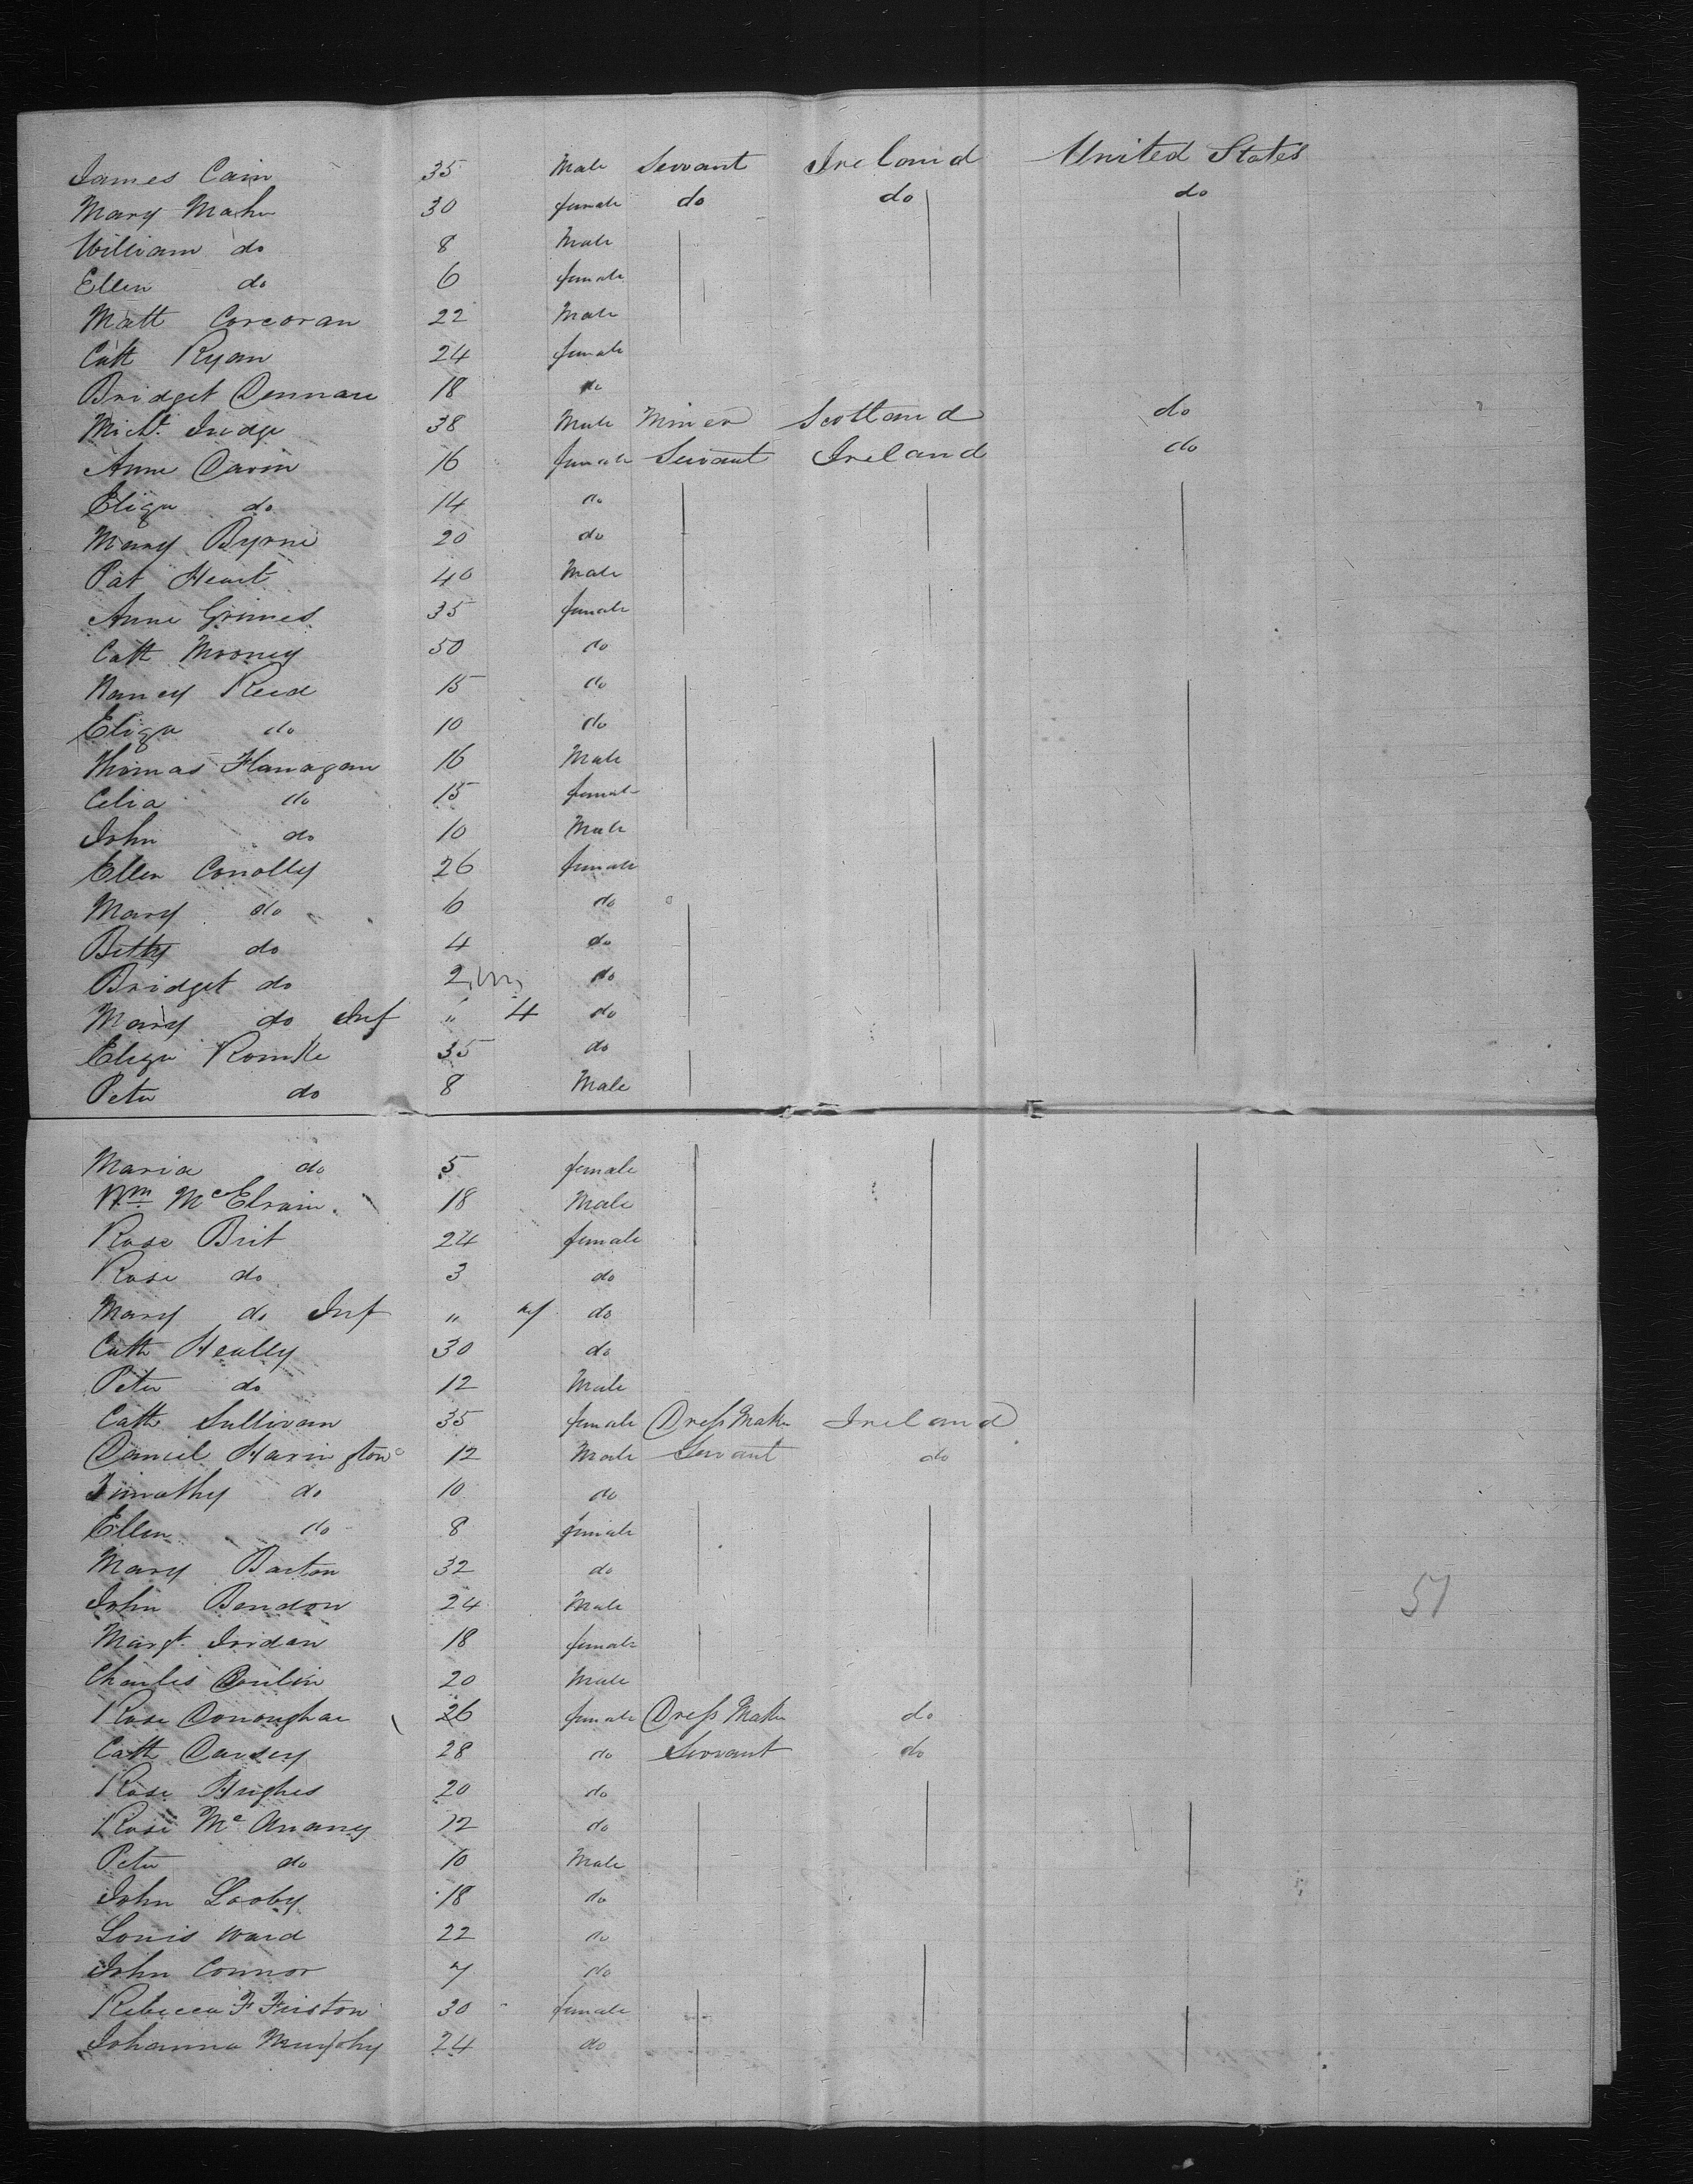 James Cain 35 Male Servant Ireland United States
Mary Mahr 30 female do do do
William do 8 Male
Ellen do 6 female
Matt Corcoran 22 Male
Cath Ryan 24 female
Bridget 18 do
Michl. Judge 38 Male Miner Scotland do
Anne Davin 16 female Servant Ireland do
Eliza do 14 do
Mary Byrne 20 do
Pat Heart 40 Male
Anne Grimes 35 female
Cath Mooney 50 do
Nancy Reid 15 do
Eliza do 10 do
Thomas Flanagan 16 Male
Celia do 15 female
John do 10 Male
Ellen Conolly 26 female
Mary do 6 do
Betty do 4 do
Bridget do 2 do
Mary do Inf " 4 do
Eliza 35 do
Peter do 8 Male
Maria do 5 female
Wm McElrain 18 Male
Rose Brit 24 female
Rose do 3 do
Mary do Inf " do
Cath Heally 30 do
Peter do 12 Male
Cath Sullivan 35 female Dress Maker Ireland
Daniel Harington 12 Male Servant do
Timothy do 10 do
Ellen do 8 female
Mary Barton 32 do
John Bendon 24 Male
51
Margt. Iridan 18 female
Charles Conlin 20 Male
Rose Donoughue 26 female Dress Maker do
Cath Darsey 28 do Servant do
Rose Hughes 20 do
Rose McAnany 12 do
Peter do 10 Male
John Looby 18 do
Louis Ward 22 do
John Connor 7 do
Rebecca F 30 female
Johanna Murphy 24 do